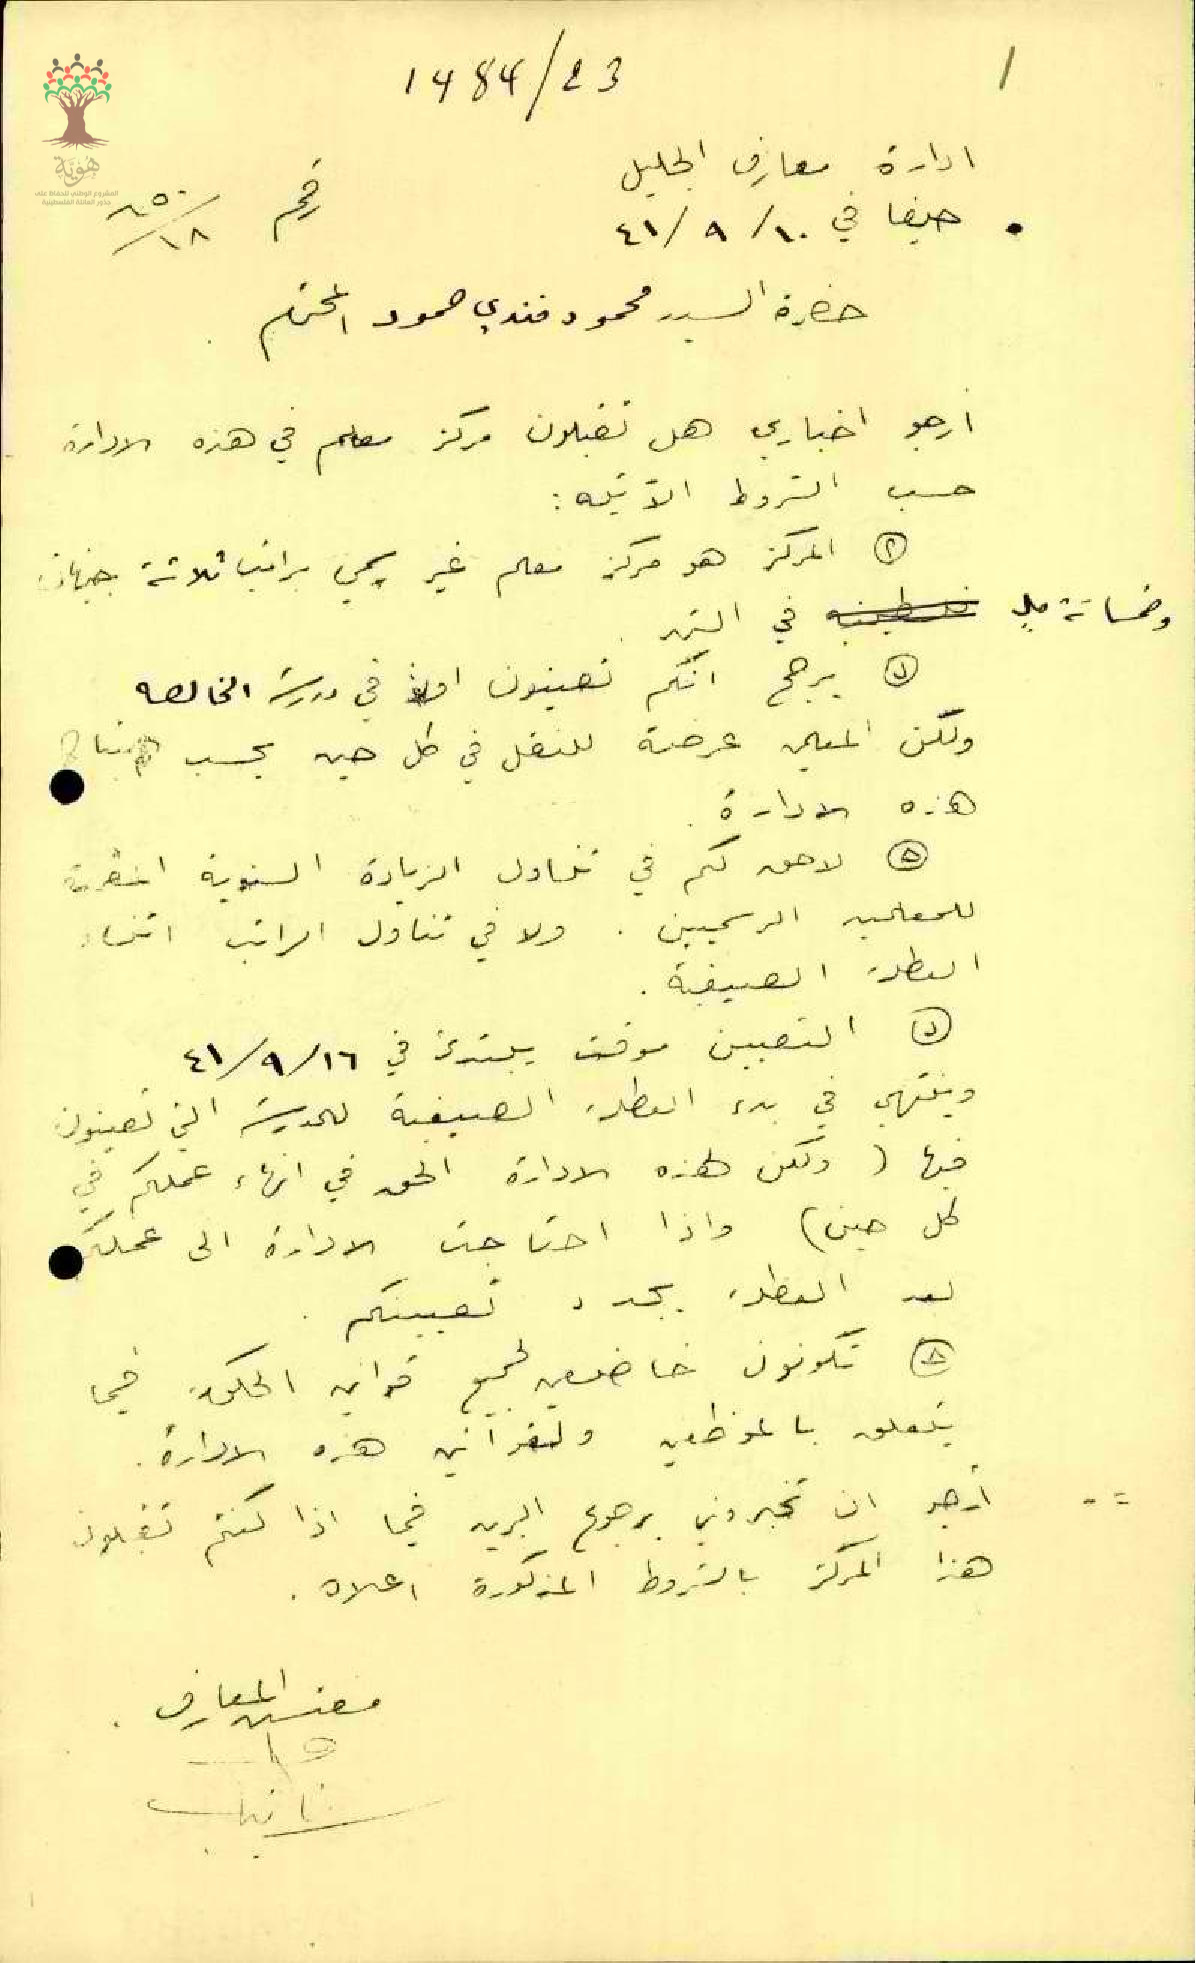 1484/23
هُوِيَّة
المشروع الوطني للحفاظ على
جذور العائلة الفلسطينية
ادارة معارف الجليل
رقم ٨٥٠/١٨
حيفا في ١٠/٩/٤١
حضرة السيد محمود فندي حمود المحترم
أرجو اخباري هل تقبلون مركز معلم في هذه الادارة
حسب الشروط الآتيه:
المركز هو مركز معلم غير رسمي براتب ثلاثة جنيهات
وخمسائة مل في الشهر.
يرجح انكم تعينون اولا في مدرسة الخالصه
ولكن المعلمين عرضة للنقل في كل حين بحسب
هذه الادارة.
لا حق لكم في تناول الزيادة السنوية المقررة
للمعلمين الرسميين. ولا في تناول الراتب اثناء
العطلة الصيفية.
التعيين موقت يبتدئ في ١٦/٩/٤١
وينتهي في بدء العطلة الصيفية للمدرسة التي تعينون
فيها (ولكن لهذه الادارة الحق في انهاء عملكم في
كل حين) واذا احتاجت الادارة الى عملكم
بعد العطلة يجدد تعيينكم.
تكونون خاضعين لجميع قوانين الحكومة فيما
يتعلق بالموظفين ولقوانين هذه الادارة.
أرجو ان تخبروني برجوع البريد فيما اذا كنتم تقبلون
هذا المركز بالشروط المذكورة اعلاه.
مفتش المعارف